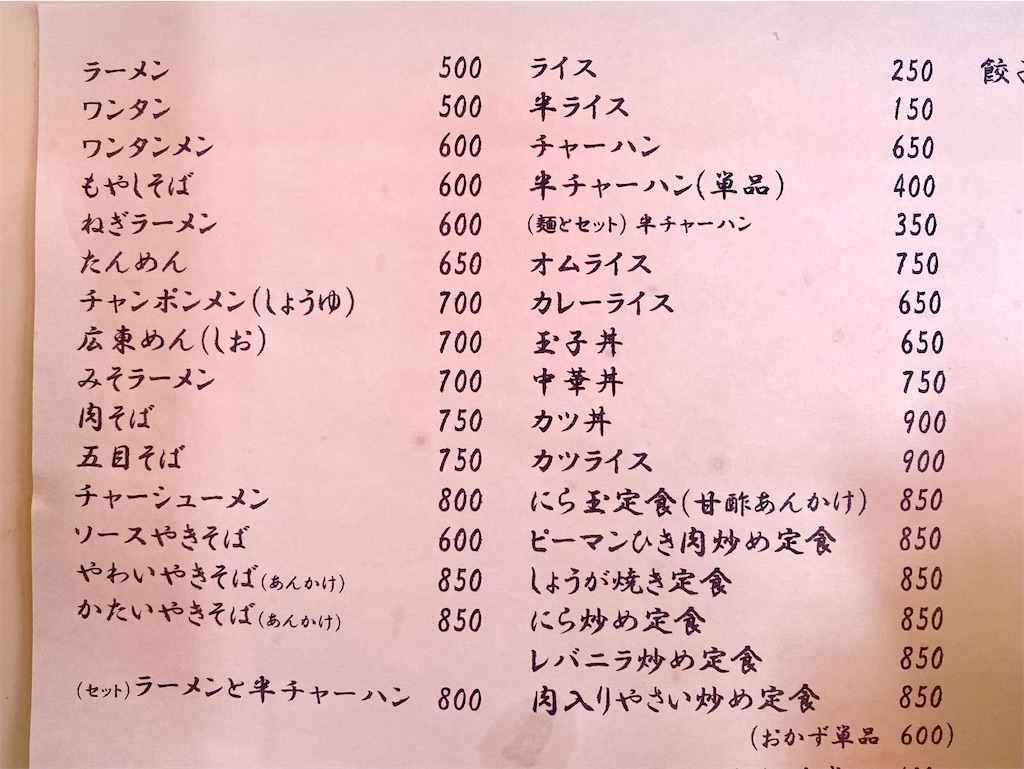 ラーメン 500
ワンタン 500
ワンタンメン 600
もやしそば 600
ねぎラーメン 600
たんめん 650
チャンポンメン(しょうゆ) 700
広東めん(しお) 700
みそラーメン 700
肉そば 750
五目そば 750
チャーシューメン 800
ソースやきそば 600
やわいやきそば(あんかけ) 850
かたいやきそば(あんかけ) 850
(セット)ラーメンと半チャーハン 800
ライス 250
半ライス 150
チャーハン 650
半チャーハン(単品) 400
(麺とセット) 半チャーハン 350
オムライス 750
カレーライス 650
玉子丼 650
中華丼 750
カツ丼 900
カツライス 900
にら玉定食(甘酢あんかけ) 850
ピーマンひき肉炒め定食 850
しょうが焼き定食 850
にら炒め定食 850
レバニラ炒め定食 850
肉入りやさい炒め定食 850
(おかず単品 600)
餃